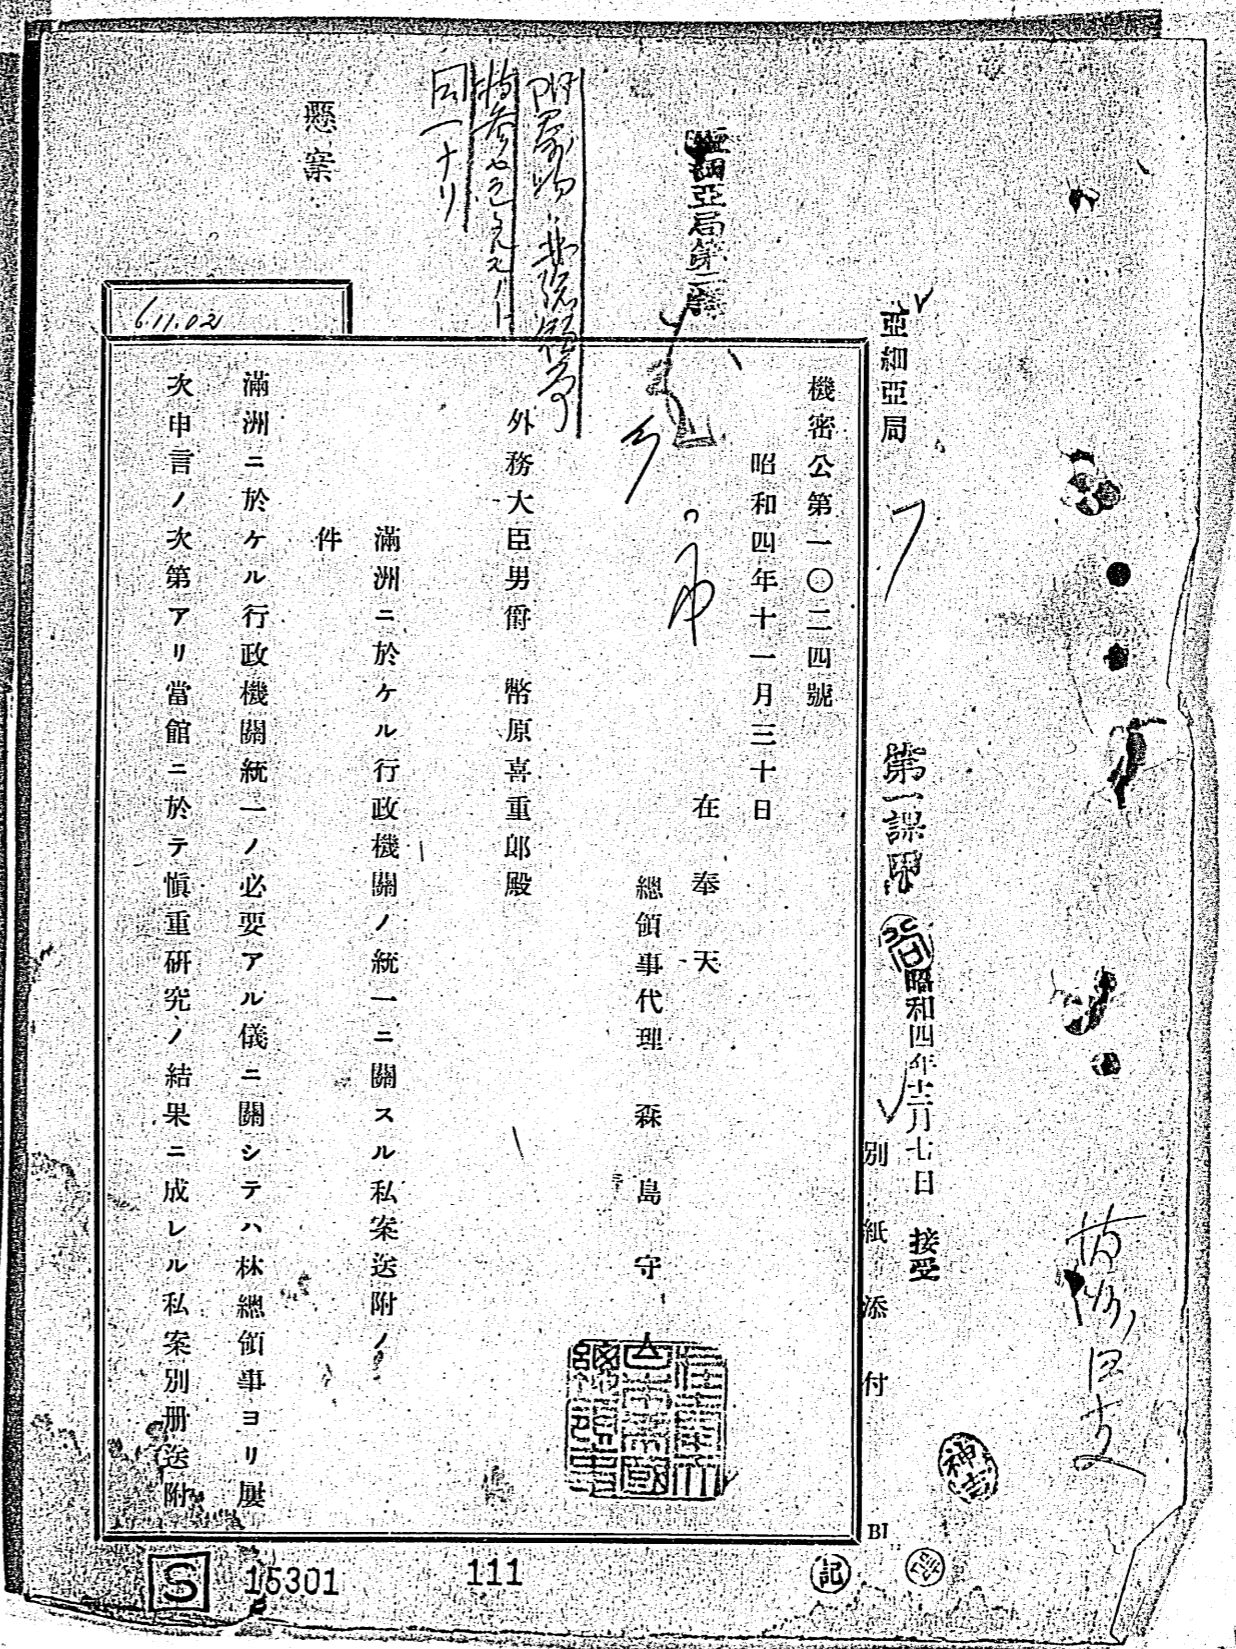 亞細亞局
第一課
昭和四年十二月七日 接受
別紙添付
機密公第一〇二四號
昭和四年十一月三十日
在奉天
總領事代理 森島守人
外務大臣男爵 幣原喜重郎殿
滿洲ニ於ケル行政機關ノ統一ニ關スル私案送附ノ
件
滿洲ニ於ケル行政機關統一ノ必要アル儀ニ關シテハ林總領事ヨリ屢
次申言ノ次第アリ當館ニ於テ愼重硏究ノ結果ニ成レル私案別册送附
亞細亞局第二課
同一ナリ
懸案
6.11.02
BI
記
S 15301
111